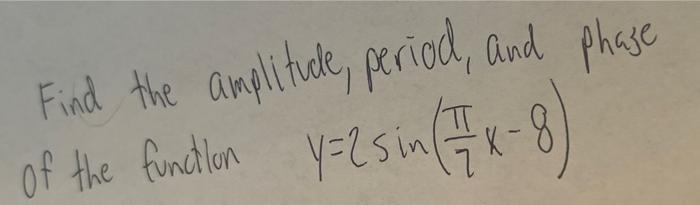 Find the amplitude, period, and phase
of the function y=2sin(π/7 x-8)